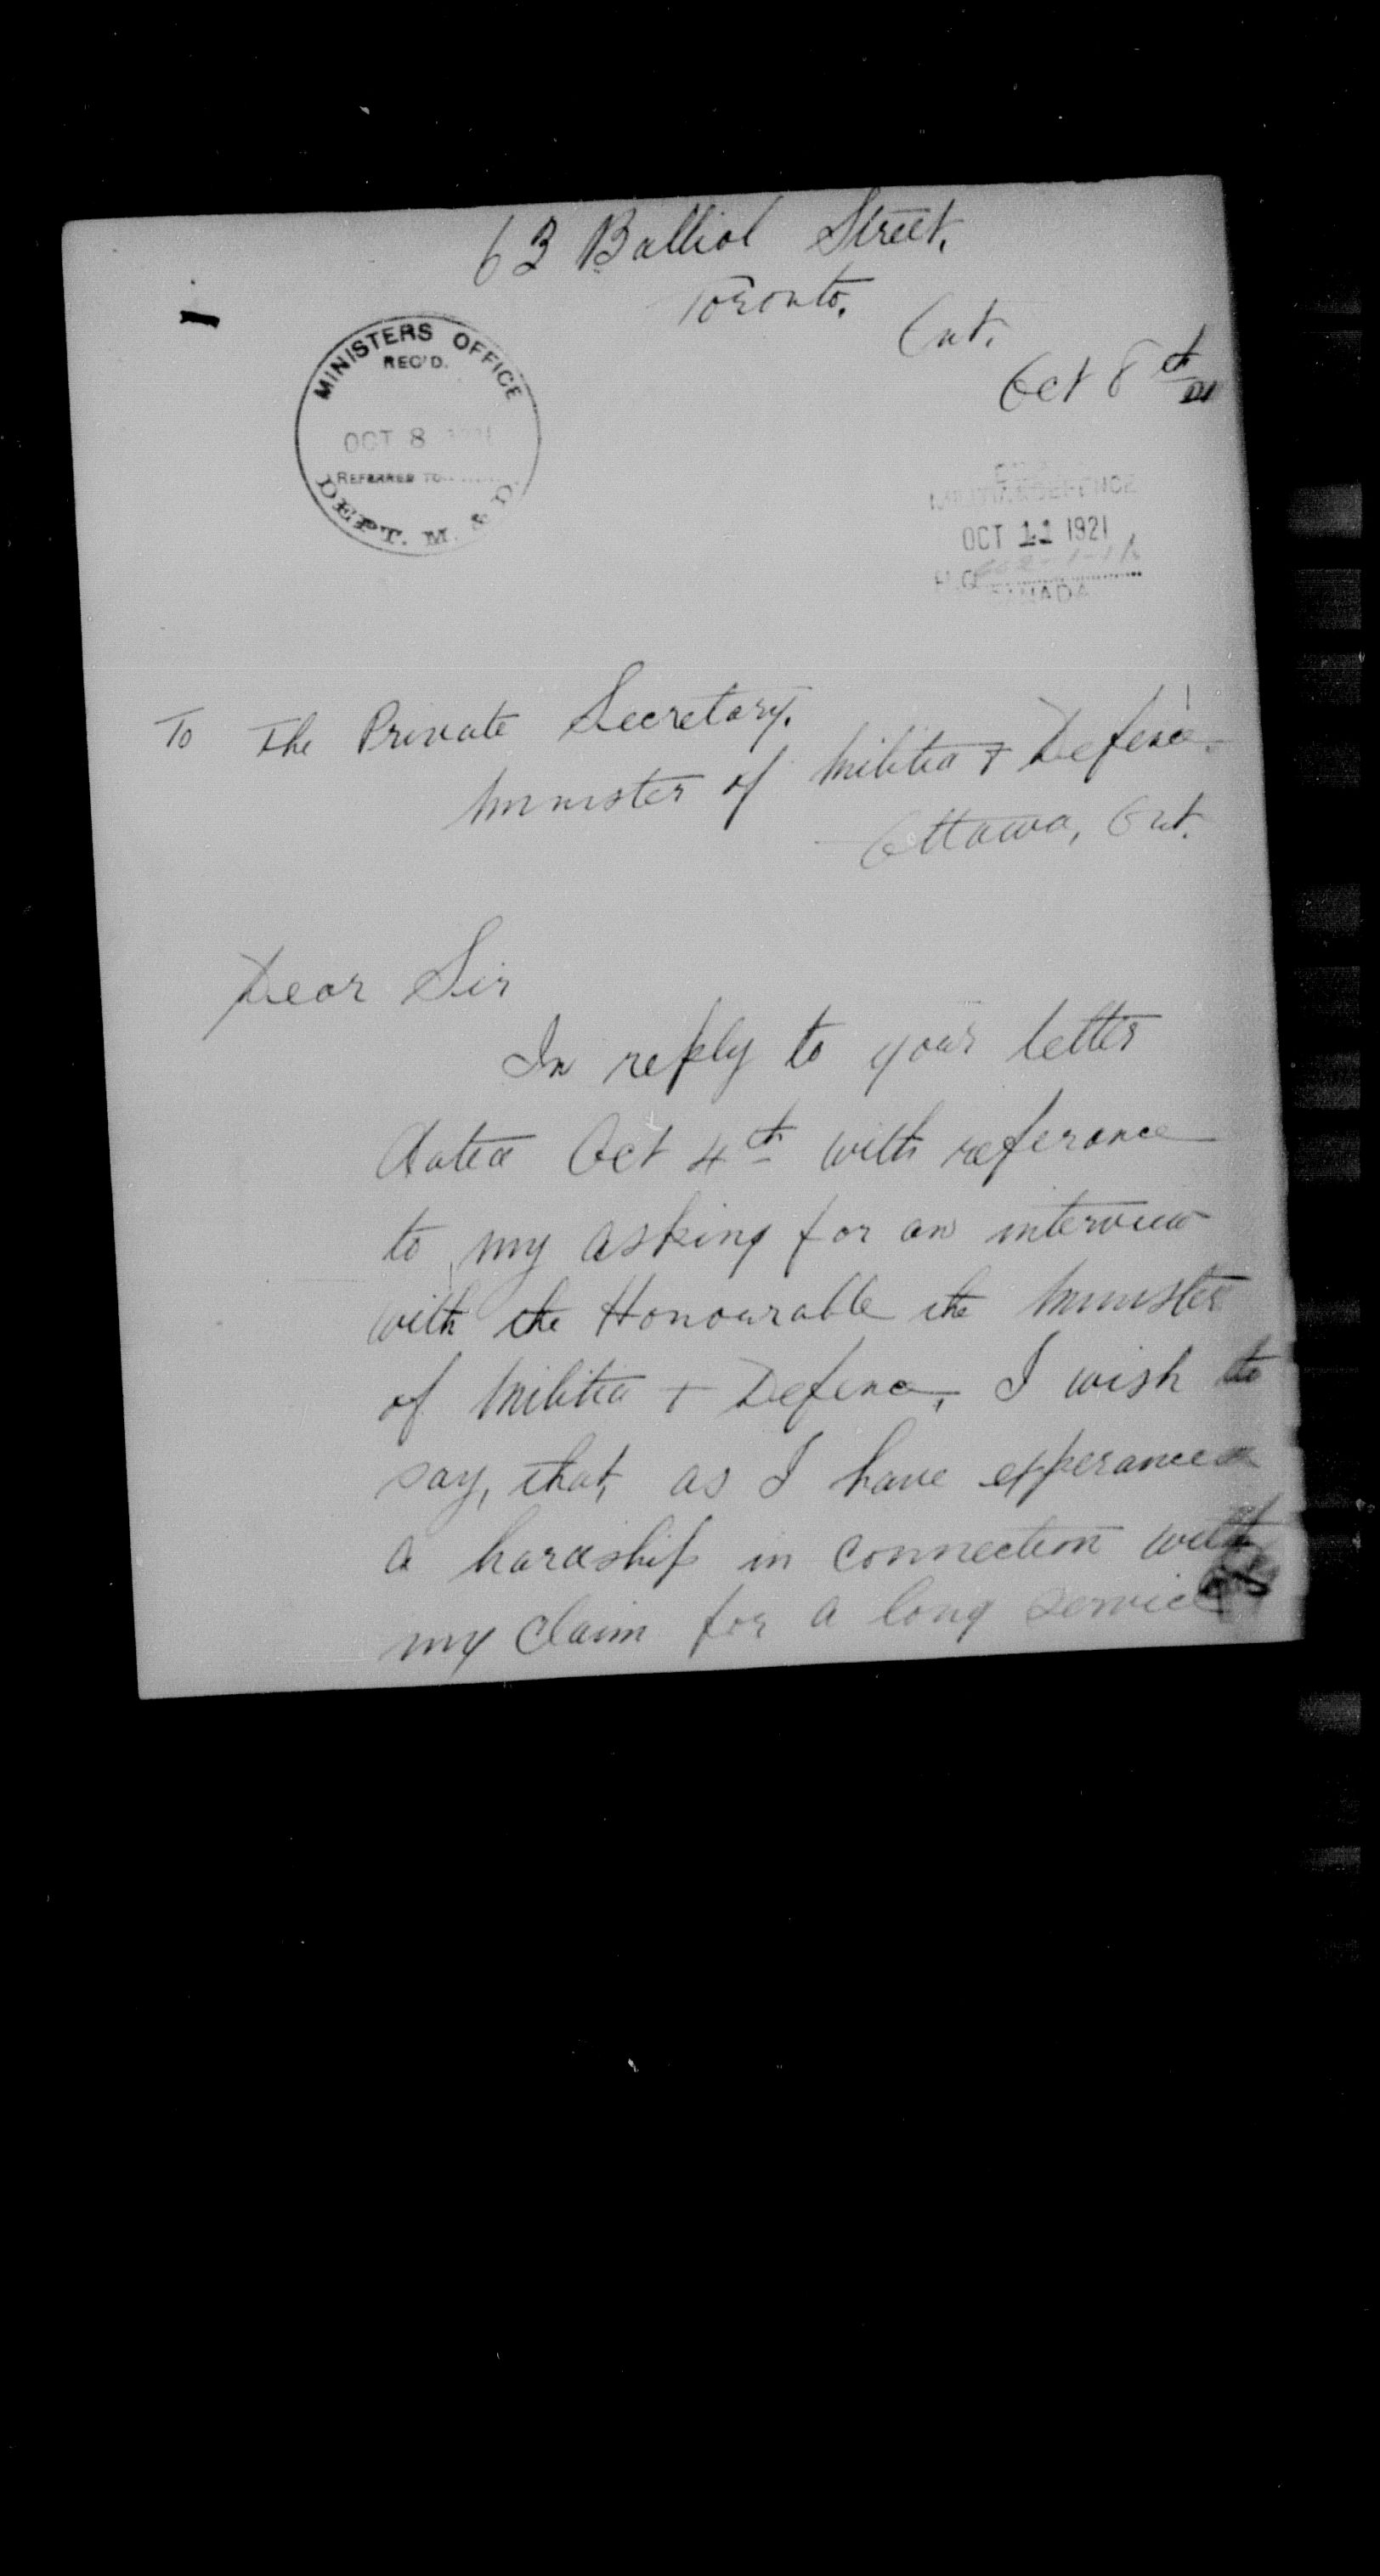 63 Balliol Street.
Toronto.
Ont.
Oct 8th
MINISTERS OFFICE
REC'D.
OCT 8
REFERRED TO
DEPT. M. & D.
MILITIA & DEFENCE
OCT 11 1921
H.Q.
CANADA
To The Private Secretary.
Minister of Militia + Defence.
Ottawa, Ont.
Dear Sir
In reply to your letter
dated Oct 4th with referance
to my asking for an interview
with the Honourable the Minister
of Militia + Defence, I wish to
say, that, as I have experanced
a hardship in connection with
my claim for a long service